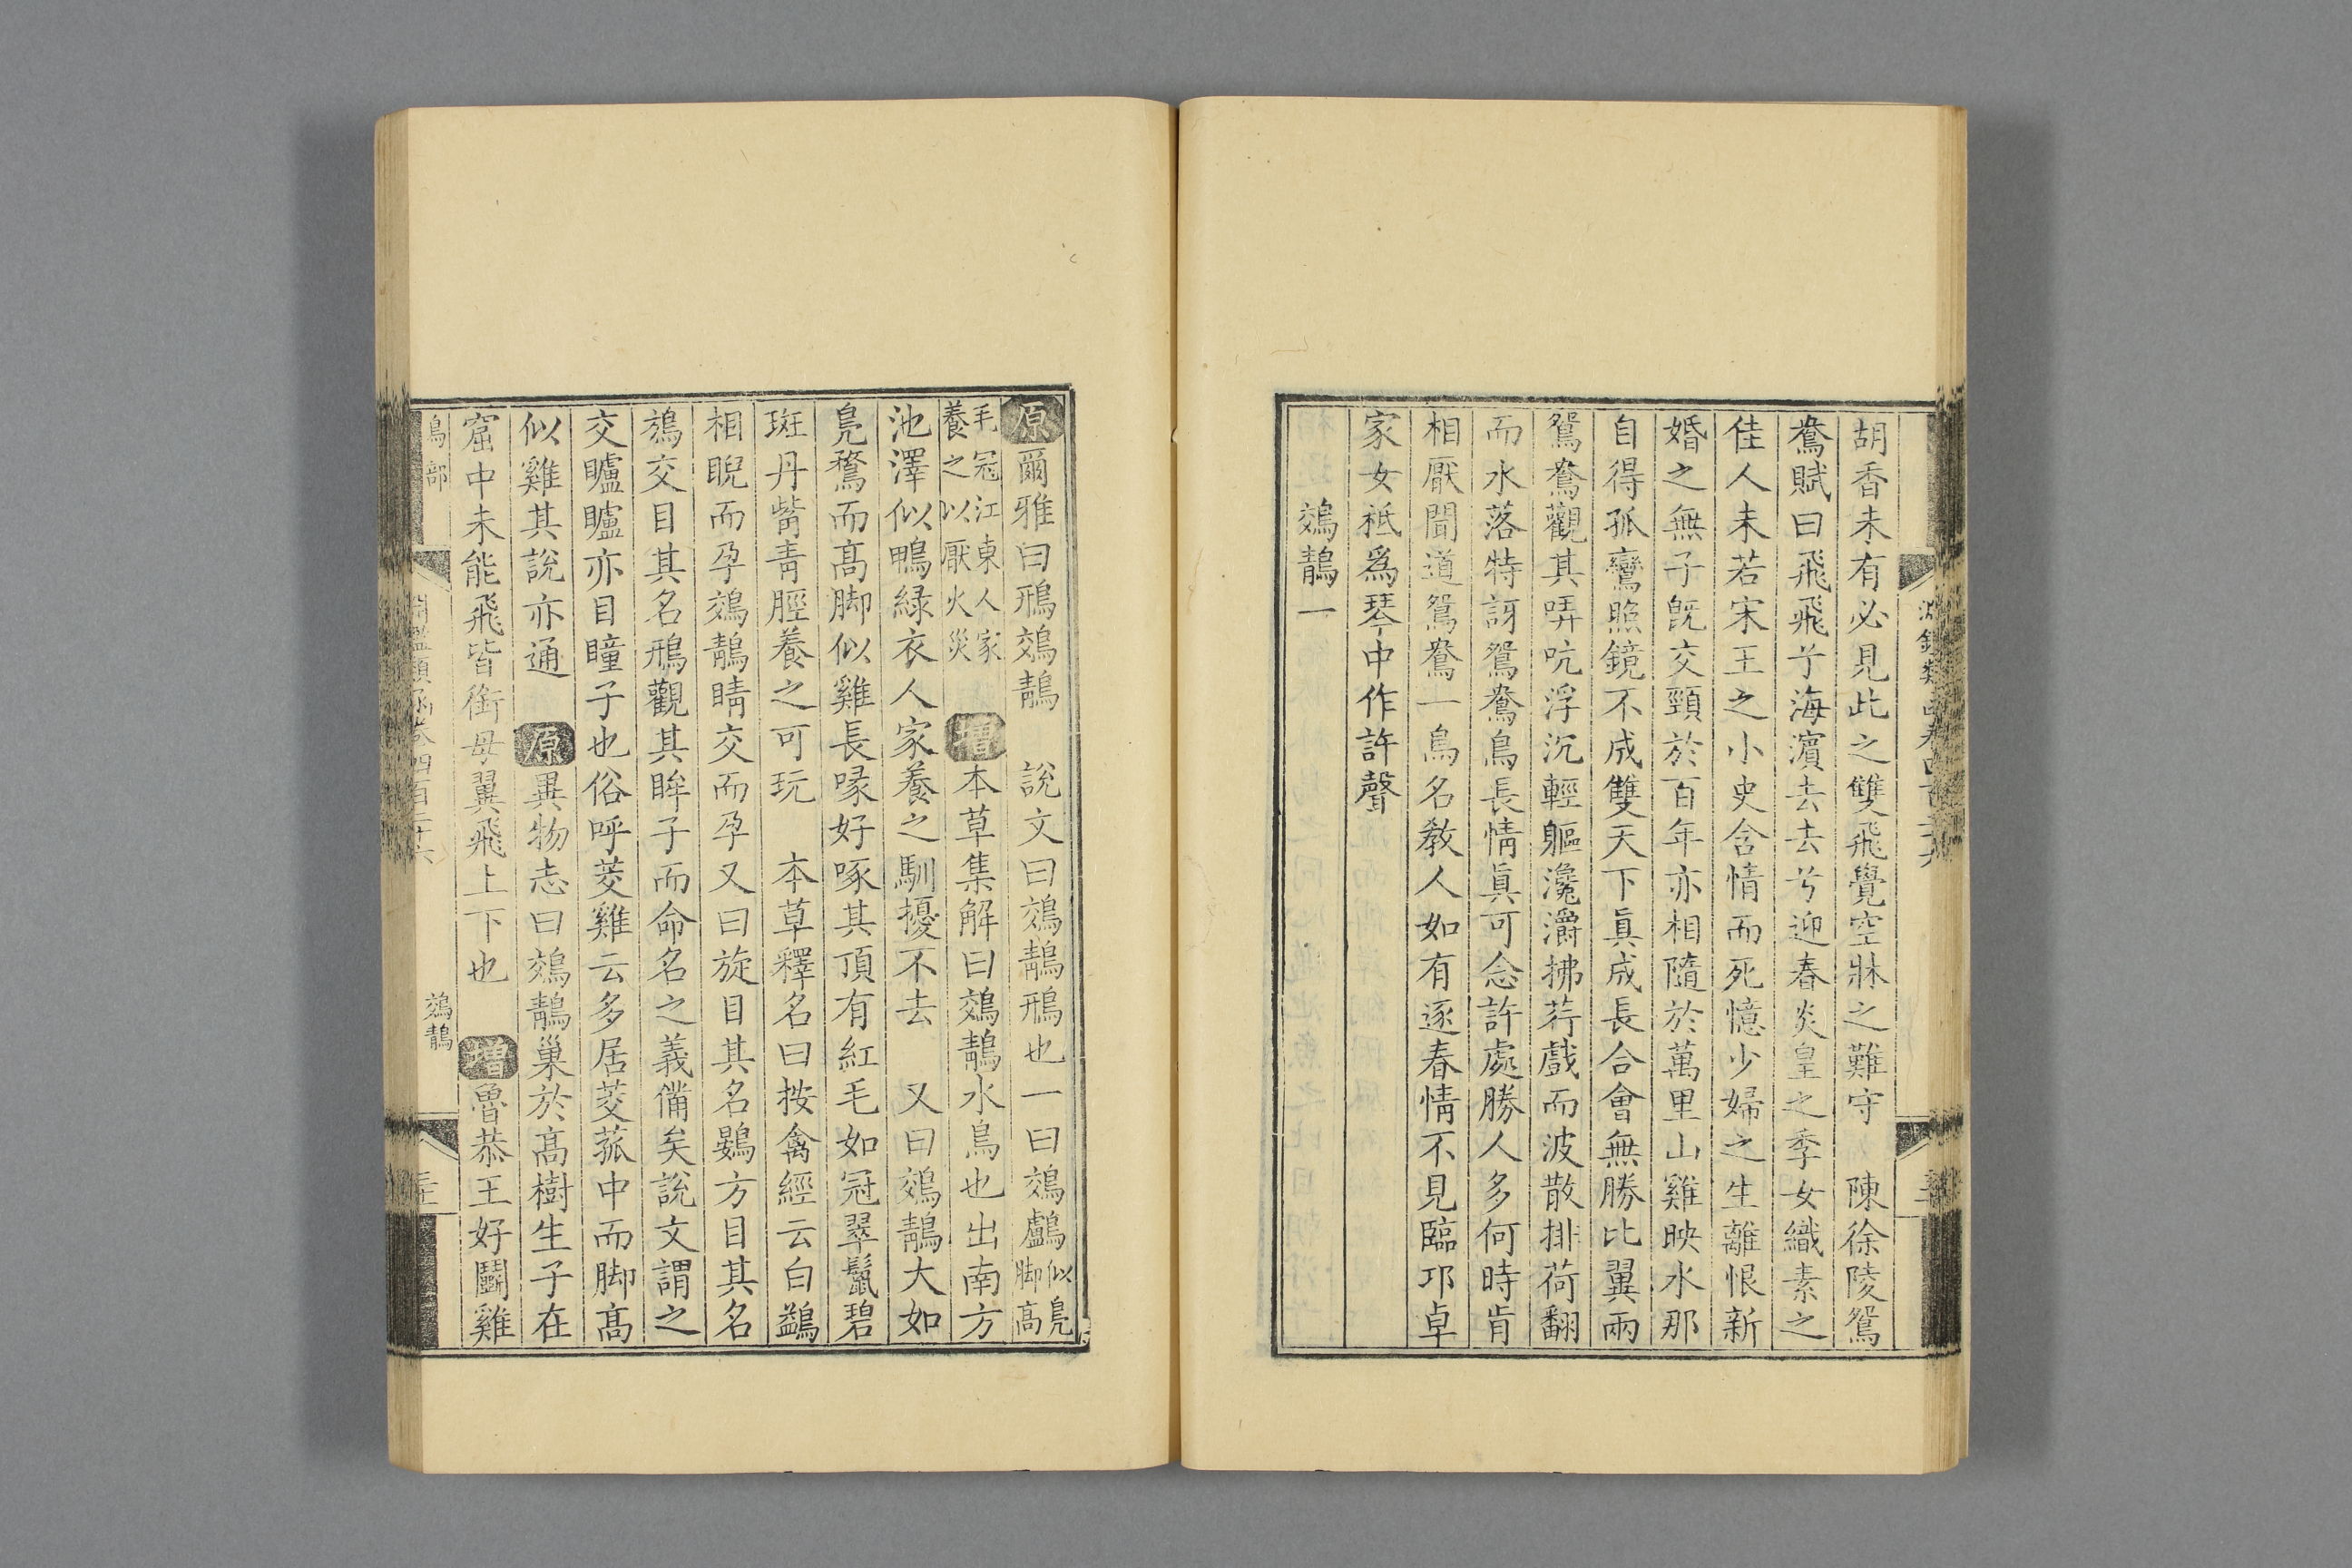 胡香未有必見此之雙飛覺空牀之難守　陳徐陵鴛
鴦賦曰飛飛兮海濵去去兮迎春炎皇之季女織素之
佳人未若宋王之小史含情而死憶少婦之生離恨新
婚之無子旣交頸於百年亦相隨於萬里山雞映水那
自得孤鸞照鏡不成雙天下眞成長合會無勝比翼兩
鴛鴦觀其哢吭浮沉輕軀瀺灂拂荇戲而波散排荷翻
而水落特訝鴛鴦鳥長情眞可念許處勝人多何時肯
相厭聞道鴛鴦一鳥名敎人如有逐春情不見臨邛卓
家女祗爲琴中作許聲
鵁鶄一
原爾雅曰鳽鵁鶄　說文曰鵁鶄鳽也一曰鵁鸕似鳧脚高
毛冠江東人家養之以厭火災　增本草集解曰鵁鶄水鳥也出南方
池澤似鴨綠衣人家養之馴擾不去　又曰鵁鶄大如
鳧鶩而高脚似雞長喙好啄其頂有紅毛如冠翠鬣碧
斑丹觜青脛養之可玩　本草釋名曰按禽經云白鷁
相睨而孕鵁鶄睛交而孕又曰旋目其名鷃方目其名
鴋交目其名鳽觀其眸子而命名之義備矣說文謂之
交矑矑亦目瞳子也俗呼茭雞云多居茭菰中而脚高
似雞其說亦通　原異物志曰鵁鶄巢於高樹生子在
窟中未能飛皆銜母翼飛上下也　增魯恭王好鬭雞
鳥部
鵁鶄